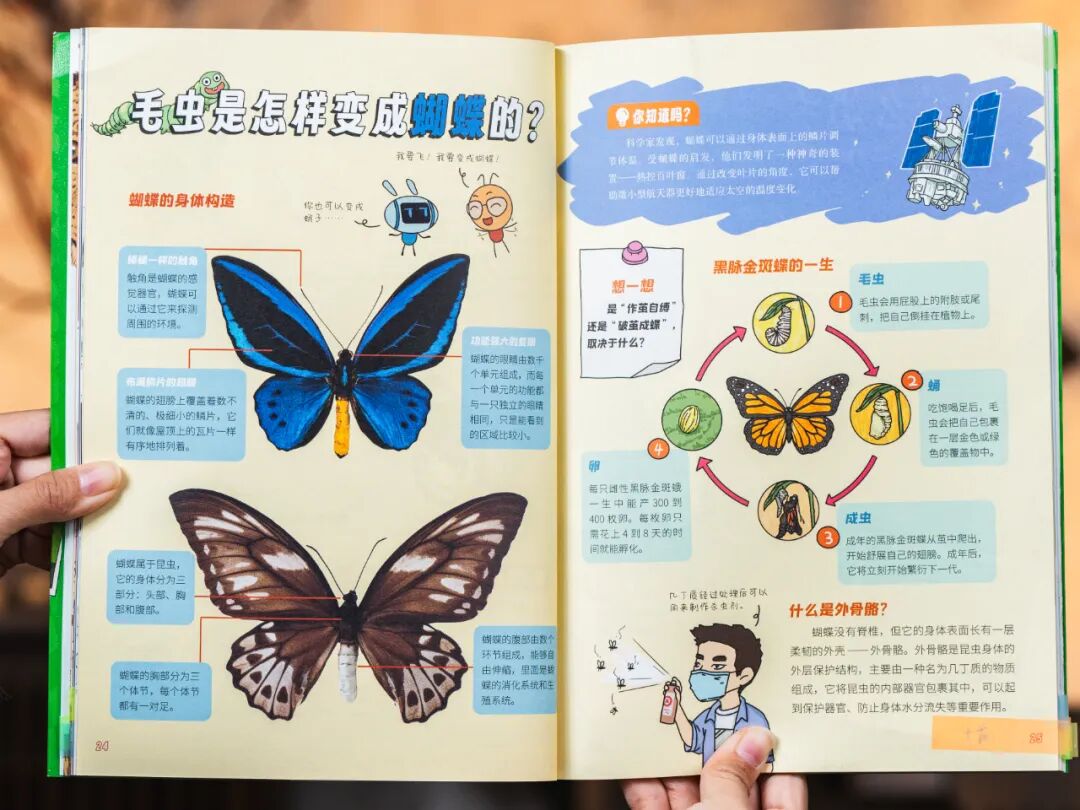 毛虫是怎样变成蝴蝶的?
我要飞!我要变成蝴蝶!
你也可以变成
蛾子……
蝴蝶的身体构造
触角是蝴蝶的感
觉器官,蝴蝶可
以通过它来探测
周围的环境。
布满鳞片的翅膀
蝴蝶的翅膀上覆盖着数不
清的、极细小的鳞片,它
们就像屋顶上的瓦片一样
有序地排列着。
功能强大的复眼
蝴蝶的眼睛由数千
个单元组成,而每
一个单元的功能都
与一只独立的眼睛
相同,只是能看到
的区域比较小。
蝴蝶属于昆虫,
它的身体分为三
部分:头部、胸
部和腹部。
蝴蝶的胸部分为三
个体节,每个体节
都有一对足。
蝴蝶的腹部由数个
环节组成,能够自
由伸缩,里面是蝴
蝶的消化系统和生
殖系统。
24
你知道吗?
科学家发现,蝴蝶可以通过身体表面上的鳞片调
节体温。受蝴蝶的启发,他们发明了一种神奇的装
置——热控百叶窗。通过改变叶片的角度,它可以帮
助微小型航天器更好地适应太空的温度变化。
想一想
是“作茧自缚”
还是“破茧成蝶”,
取决于什么?
黑脉金斑蝶的一生
1
毛虫
毛虫会用屁股上的附肢或尾
刺,把自己倒挂在植物上。
2
蛹
吃饱喝足后,毛
虫会把自己包裹
在一层金色或绿
色的覆盖物中。
3
成虫
成年的黑脉金斑蝶从茧中爬出,
开始舒展自己的翅膀。成年后,
它将立刻开始繁衍下一代。
4
卵
每只雌性黑脉金斑蛾
一生中能产300到
400枚卵。每枚卵只
需花上4到8天的时
间就能孵化。
几丁质经过处理后可以
用来制作杀虫剂。
什么是外骨骼?
蝴蝶没有脊椎,但它的身体表面长有一层
柔韧的外壳——外骨骼。外骨骼是昆虫身体的
外层保护结构,主要由一种名为几丁质的物质
组成,它将昆虫的内部器官包裹其中,可以起
到保护器官、防止身体水分流失等重要作用。
25